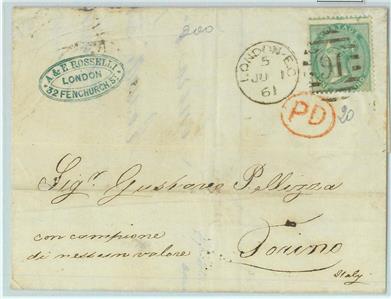 200
A & E ROSSELLI
LONDON
32 FENCHURCH ST.
LONDON-E.C
5
JU
61
91
PD
20
Sigr. Gustavo Pellizza
con campione
di nessun valore
Torino
Italy